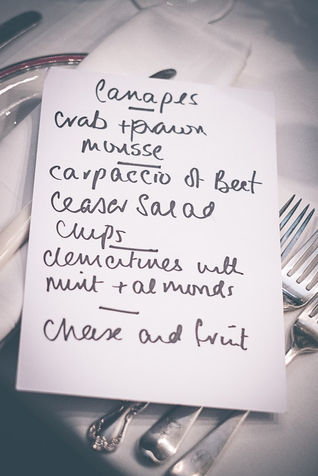 Canapes
Crab + prawn
mousse
Carpaccio of Beef
Ceaser Salad
Chips
clementines with
mint + almonds
Cheese and fruit